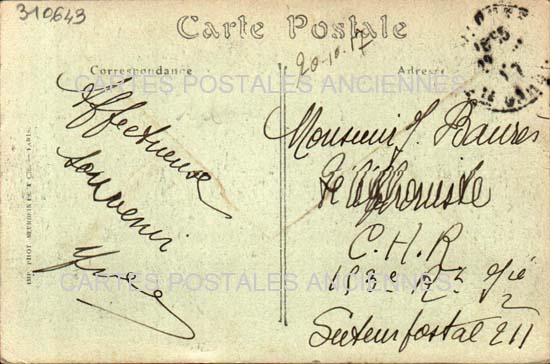 310643
Carte Postale
20-10-17
Correspondance
Adresse
CARTES POSTALES ANCIENNES
Affectueux
souvenir
Monsieur J. Baurès
Téléphoniste
C.H.R
153e R.I
Secteur postal 211
CARTES POSTALES ANCIENNES